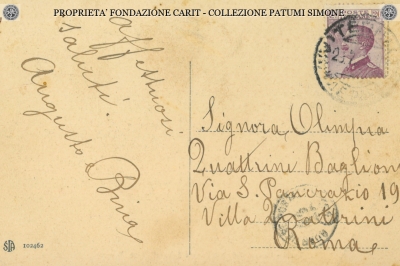 PROPRIETA' FONDAZIONE CARIT - COLLEZIONE PATUMI SIMONE
Affettuosi
saluti.
Augusto e
Bina
Signora Olimpia
Quattrini Baglioni
Via S. Pancrazio 19
Villa
Roma
102462